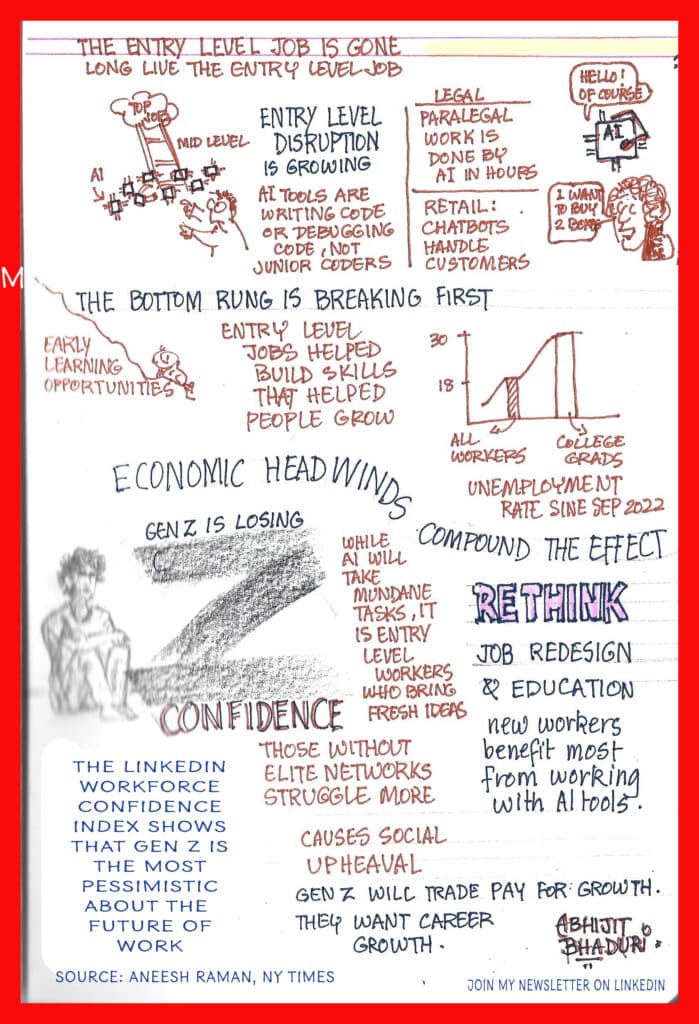 THE ENTRY LEVEL JOB IS GONE
LONG LIVE THE ENTRY LEVEL JOB
TOP
JOBS
MID LEVEL
AI
ENTRY LEVEL
DISRUPTION
IS GROWING
AI TOOLS ARE
WRITING CODE
OR DEBUGGING
CODE, NOT
JUNIOR CODERS
LEGAL
PARALEGAL
WORK IS
DONE BY
AI IN HOURS
RETAIL:
CHATBOTS
HANDLE
CUSTOMERS
HELLO!
OF COURSE
AI
I WANT
TO BUY
2
M
THE BOTTOM RUNG IS BREAKING FIRST
EARLY
LEARNING
OPPORTUNITIES
ENTRY LEVEL
JOBS HELPED
BUILD SKILLS
THAT HELPED
PEOPLE GROW
30
18
ALL
WORKERS
COLLEGE
GRADS
UNEMPLOYMENT
RATE SINE SEP 2022
ECONOMIC HEADWINDS
COMPOUND THE EFFECT
GEN Z IS LOSING
C
Z
CONFIDENCE
WHILE
AI WILL
TAKE
MUNDANE
TASKS, IT
IS ENTRY
LEVEL
WORKERS
WHO BRING
FRESH IDEAS
RETHINK
JOB REDESIGN
& EDUCATION
new workers
benefit most
from working
with AI tools.
THE LINKEDIN
WORKFORCE
CONFIDENCE
INDEX SHOWS
THAT GEN Z IS
THE MOST
PESSIMISTIC
ABOUT THE
FUTURE OF
WORK
THOSE WITHOUT
ELITE NETWORKS
STRUGGLE MORE
CAUSES SOCIAL
UPHEAVAL
GEN Z WILL TRADE PAY FOR GROWTH.
THEY WANT CAREER
GROWTH.
ABHIJIT
BHADURI
SOURCE: ANEESH RAMAN, NY TIMES
JOIN MY NEWSLETTER ON LINKEDIN